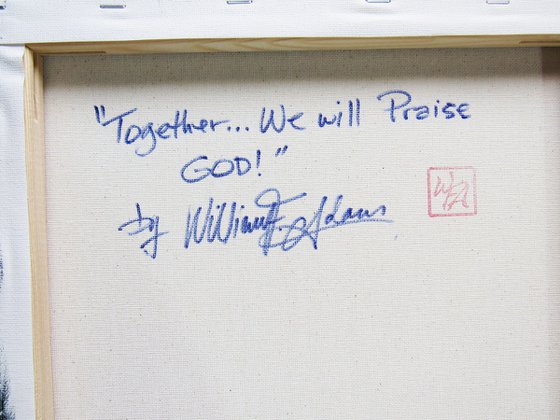 "Together... We will Praise
GOD!"
by William E. Adams